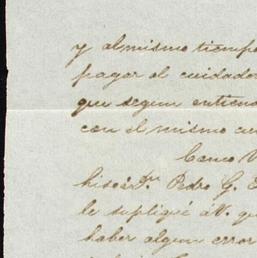 y al mismo tiempo
pagar al cuidador
que segun entiend
con el mismo
Como V
hiso á Dn. Pedro G.
le supliqué á V. qu
haber algun error